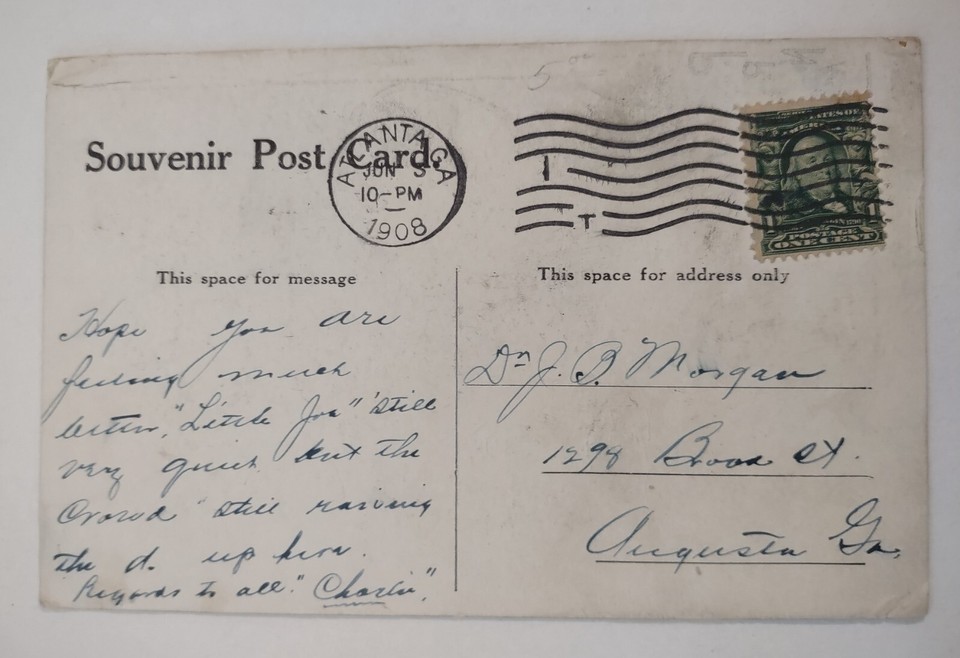 Souvenir Post Card.
ATLANTA, GA
JUN 5
10-PM
1908
1
T
POSTAGE
ONE CENT
This space for message
This space for address only
Hope you are
feeling much
better, "Little Joe" still
very quiet but the
Crowd still raising
the d. up here.
Regards to all. "Charlie".
Dr J. B. Morgan
1298 Broad St.
Augusta Ga.